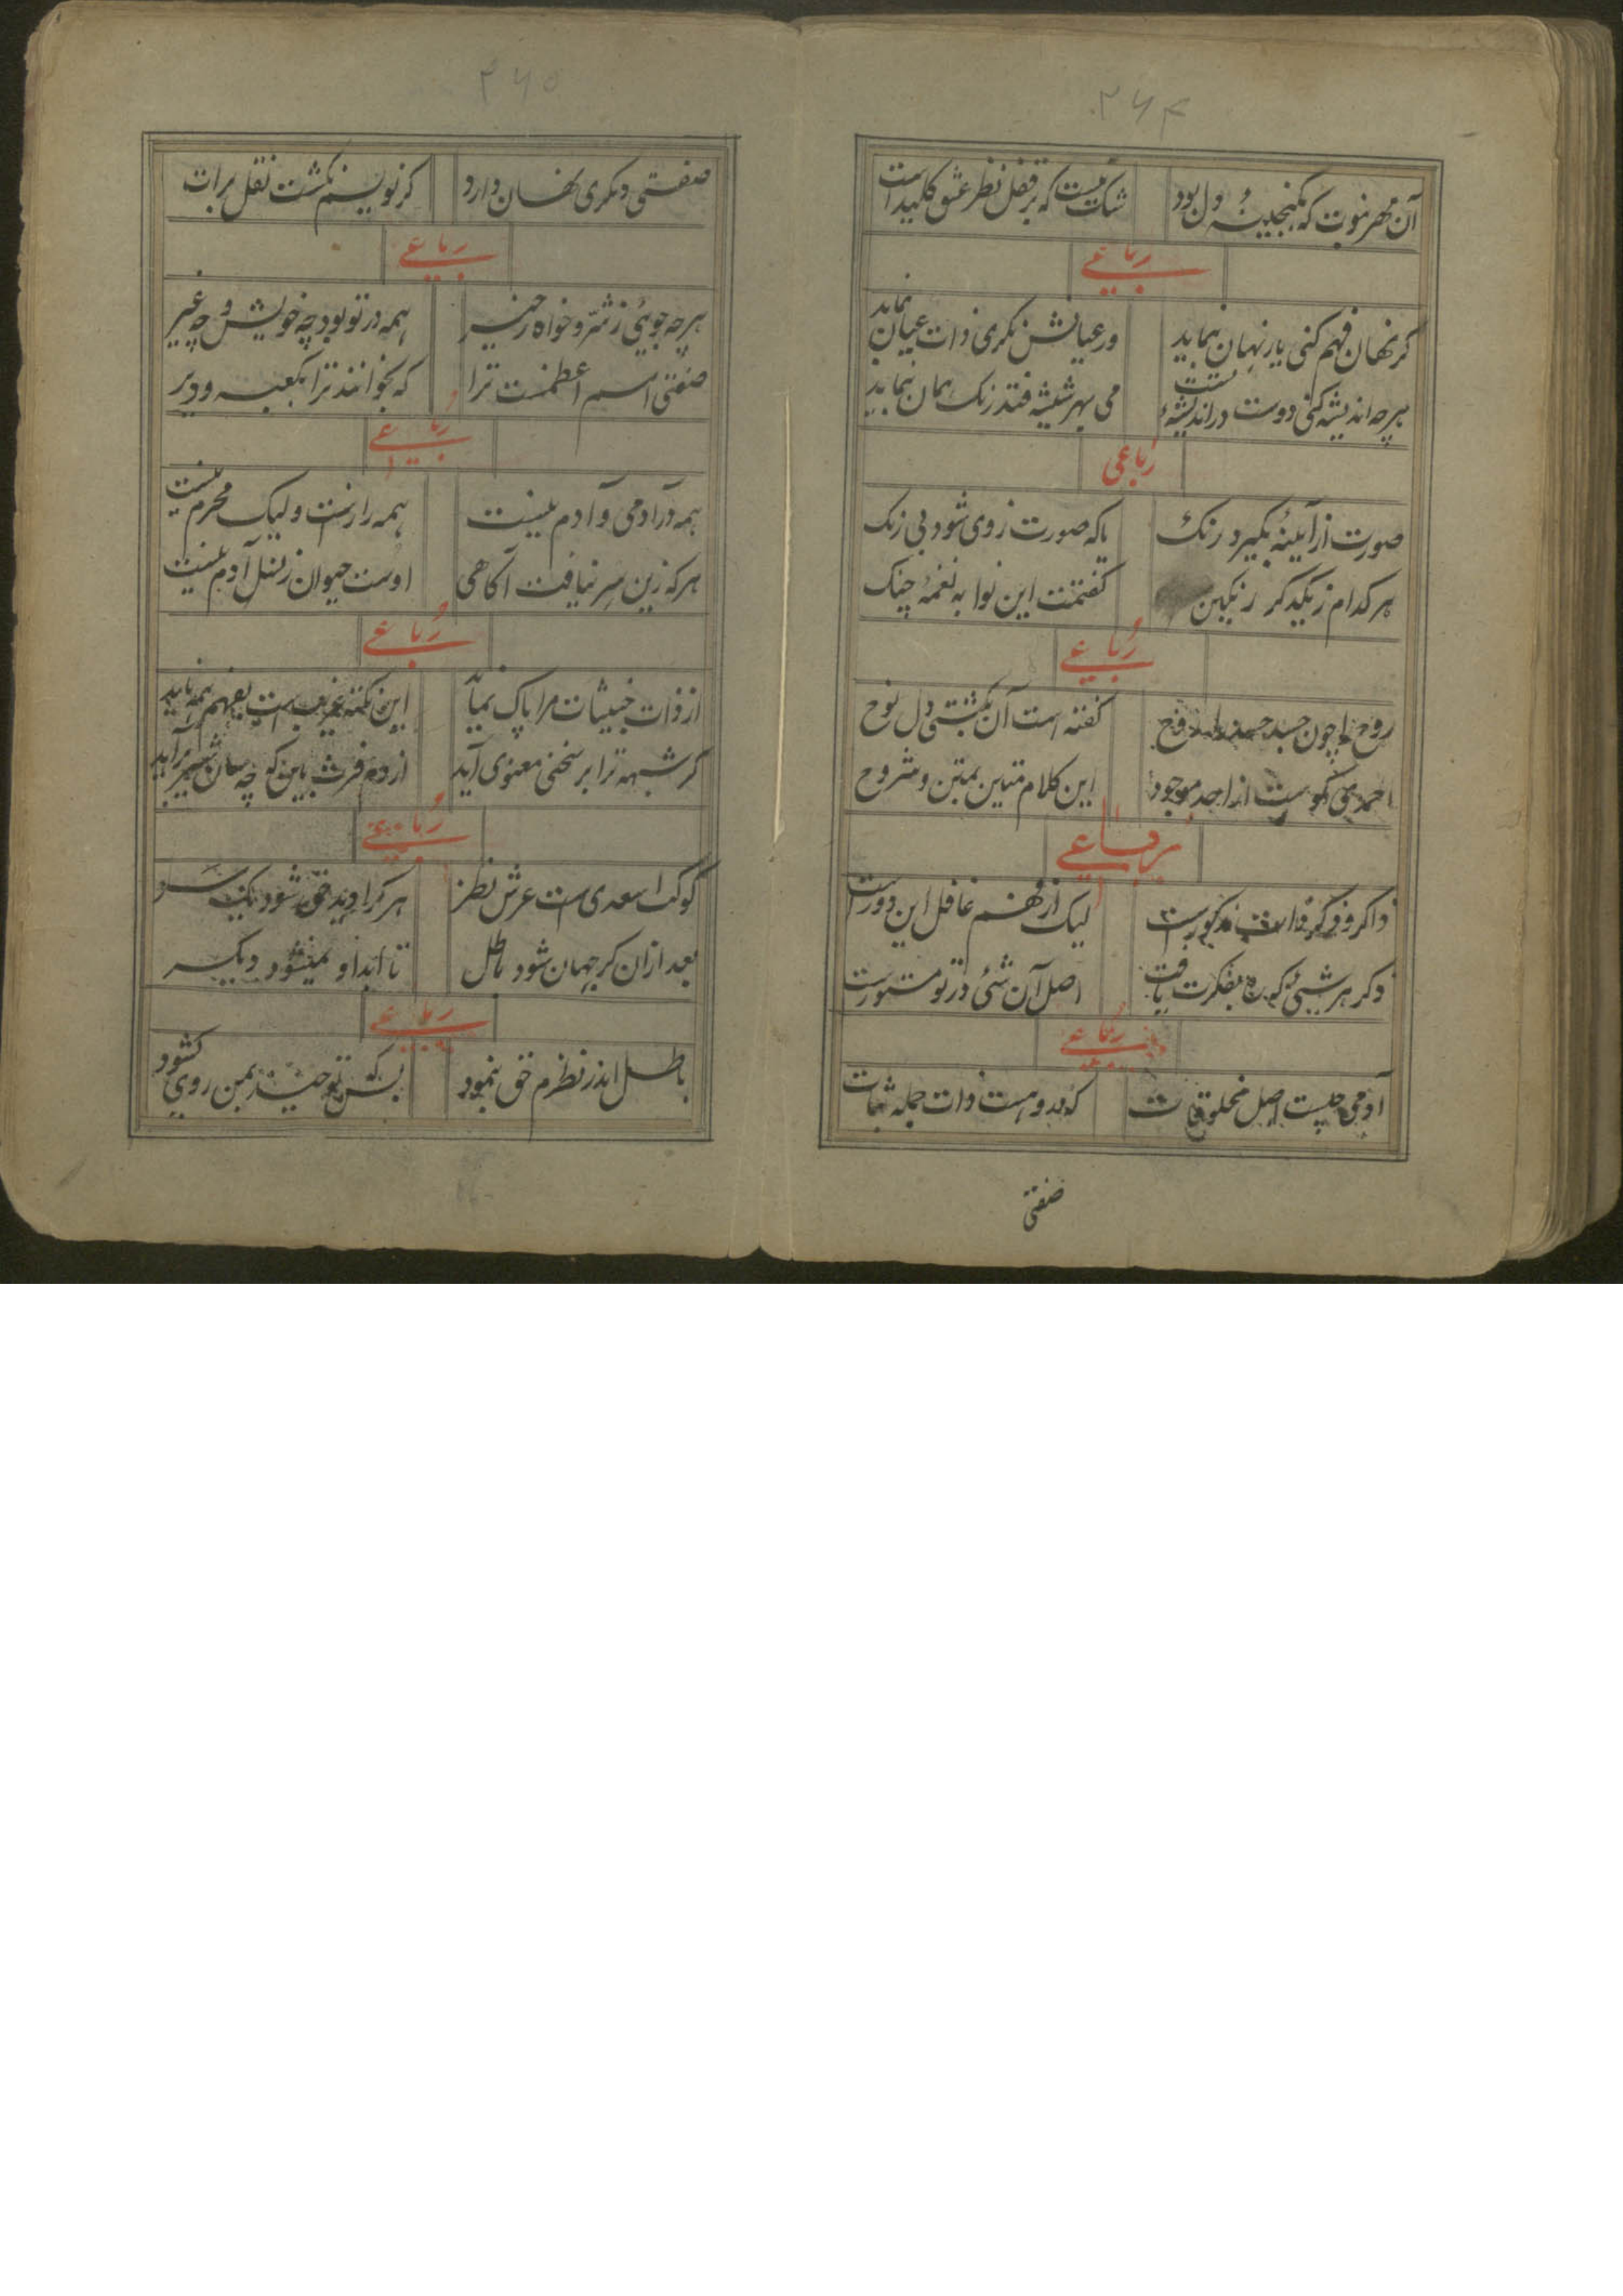 ۲۶۴
آن مهر نبوت که بگنجینهٔ دل بود شک نیست که بر قفل نظر عشق کلید است
رباعی
کر نهان فهم کنی یار نهان بنماید ور عیانش نکری ذات عیان بنماید
هرچه اندیشه کنی دوست در اندیشهٔ تست می بهر شیشه فتد رنک همان بنماید
رباعی
صورت از آیینه بکیرد رنک یا که صورت ز روی شود بی زنک
هر کدام ز یکدکر رنکین کفتمت این نوا به نغمهٔ چنک
رباعی
روح چون جسد کفته است آن بکشتی دل نوح
از احد موجود این کلام متین بمتن و شروح
رباعی
ذاکر و ذکر مذکورست لیک از فهم غافل این دورست
ذکر هر شیئ که ره بفکرت یافت اصل آن شئ در تو مستورست
رباعی
آدمی چیست اصل مخلوقات که بدو هست ذات جمله ثبات
صفتی
۲۶۵
صفتی دیکری نهان دارد کر نویسم نکشت نقل برات
رباعی
هرچه جوئی ز شر و خواه ز خیر همه در تو بود چه خویش و چه غیر
صفتی اسم اعظمست ترا که بخوانند ترا بکعبه و دیر
رباعی
همه در آدمی و آدم نیست همه رازست ولیک محرم نیست
هر که زین سر نیافت آکاهی اوست حیوان ز نسل آدم نیست
رباعی
از ذات خبیثات مرا پاک نماید این نکته غریب است بفهم همه ناید
کر شبهه ترا بر سخنی معنوی آید از دم فرث ببین کو چه سان شیر برآید
رباعی
کوکب اسعدی است عرش نظر هر کرا دید حق شود یکسر
بعد ازان کر جهان شود باطل تا ابد او نمیشود دیکر
رباعی
باطل اندر نظرم حق بنمود بسکه توحید بمن روی کشود